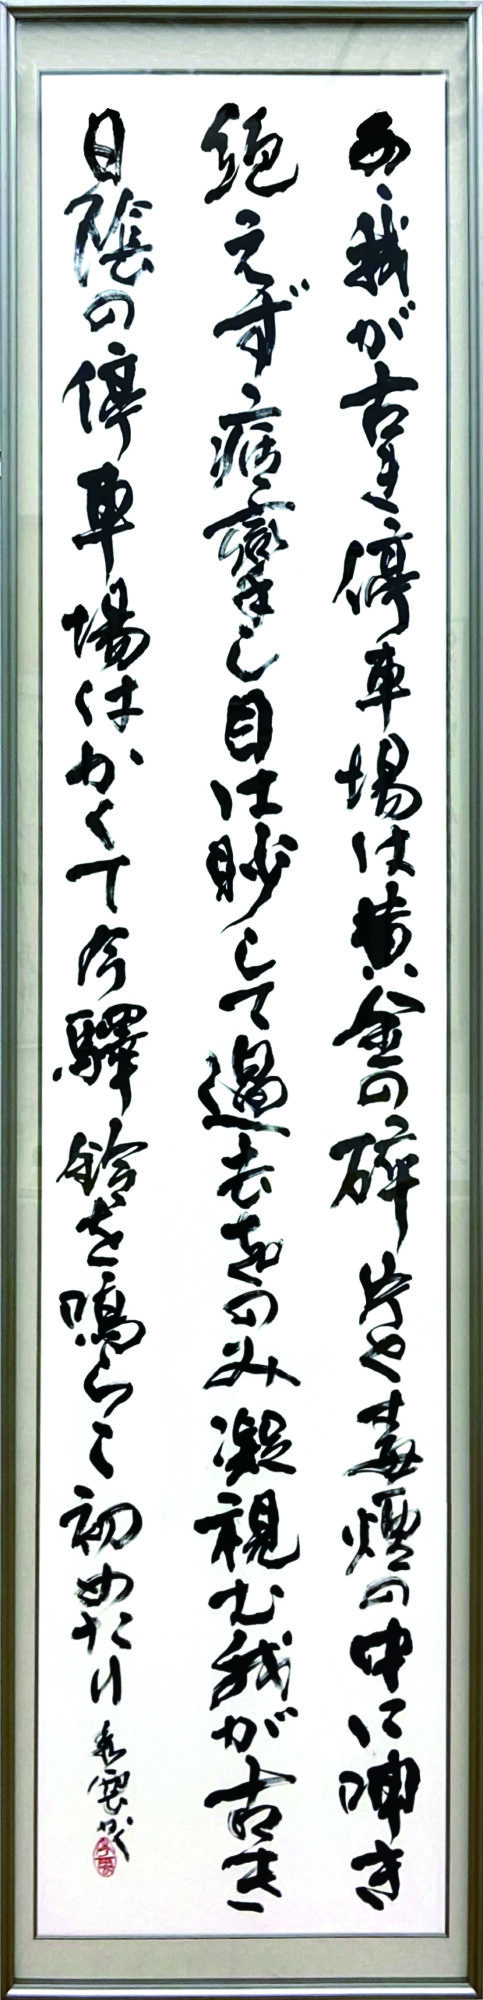 あゝ我が古き停車場は黄金の碎片や毒煙の中に呻き
絶えず痙攣し目は眇して過去をのみ凝視む我が古き
日陰の停車場はかくて今驛鈴を鳴らし初めたり